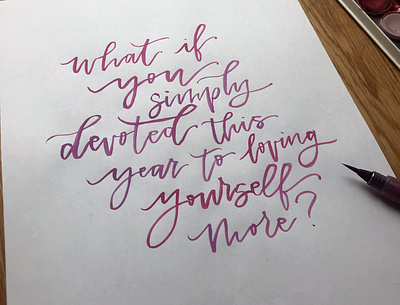 what if
you
simply
devoted this
year to loving
yourself
more?